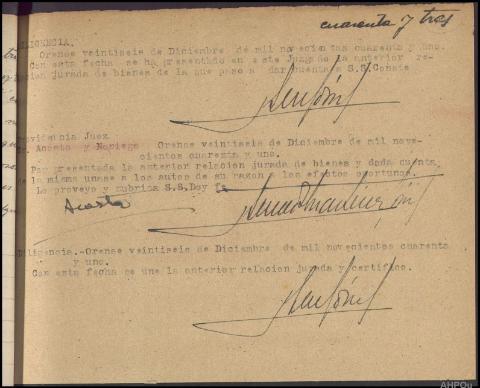 cuarenta y tres
ILIGENCIA.
Orense veintiseis de Diciembre de mil novecientos cuarenta y uno.
Con esta fecha se ha presentado en este Juzgado la anterior re-
lacion jurada de bienes de la que paso a dar cuenta a S.S. Conste
ovidencia Juez
Acosta y Noriega Orense veintiseis de Diciembre de mil nove-
cientos cuarenta y uno.
Por presentada la anterior relacion jurada de bienes y dada cuenta,
de la misma unase a los autos de su razon a los efectos oportunos.
Lo proveyo y rubrica S.S. Doy fe
Acosta
Diligencia.-Orense veintiseis de Diciembre de mil novecientos cuarenta
y uno.
Con esta fecha se une la anterior relacion jurada y certifico.
AHPOu